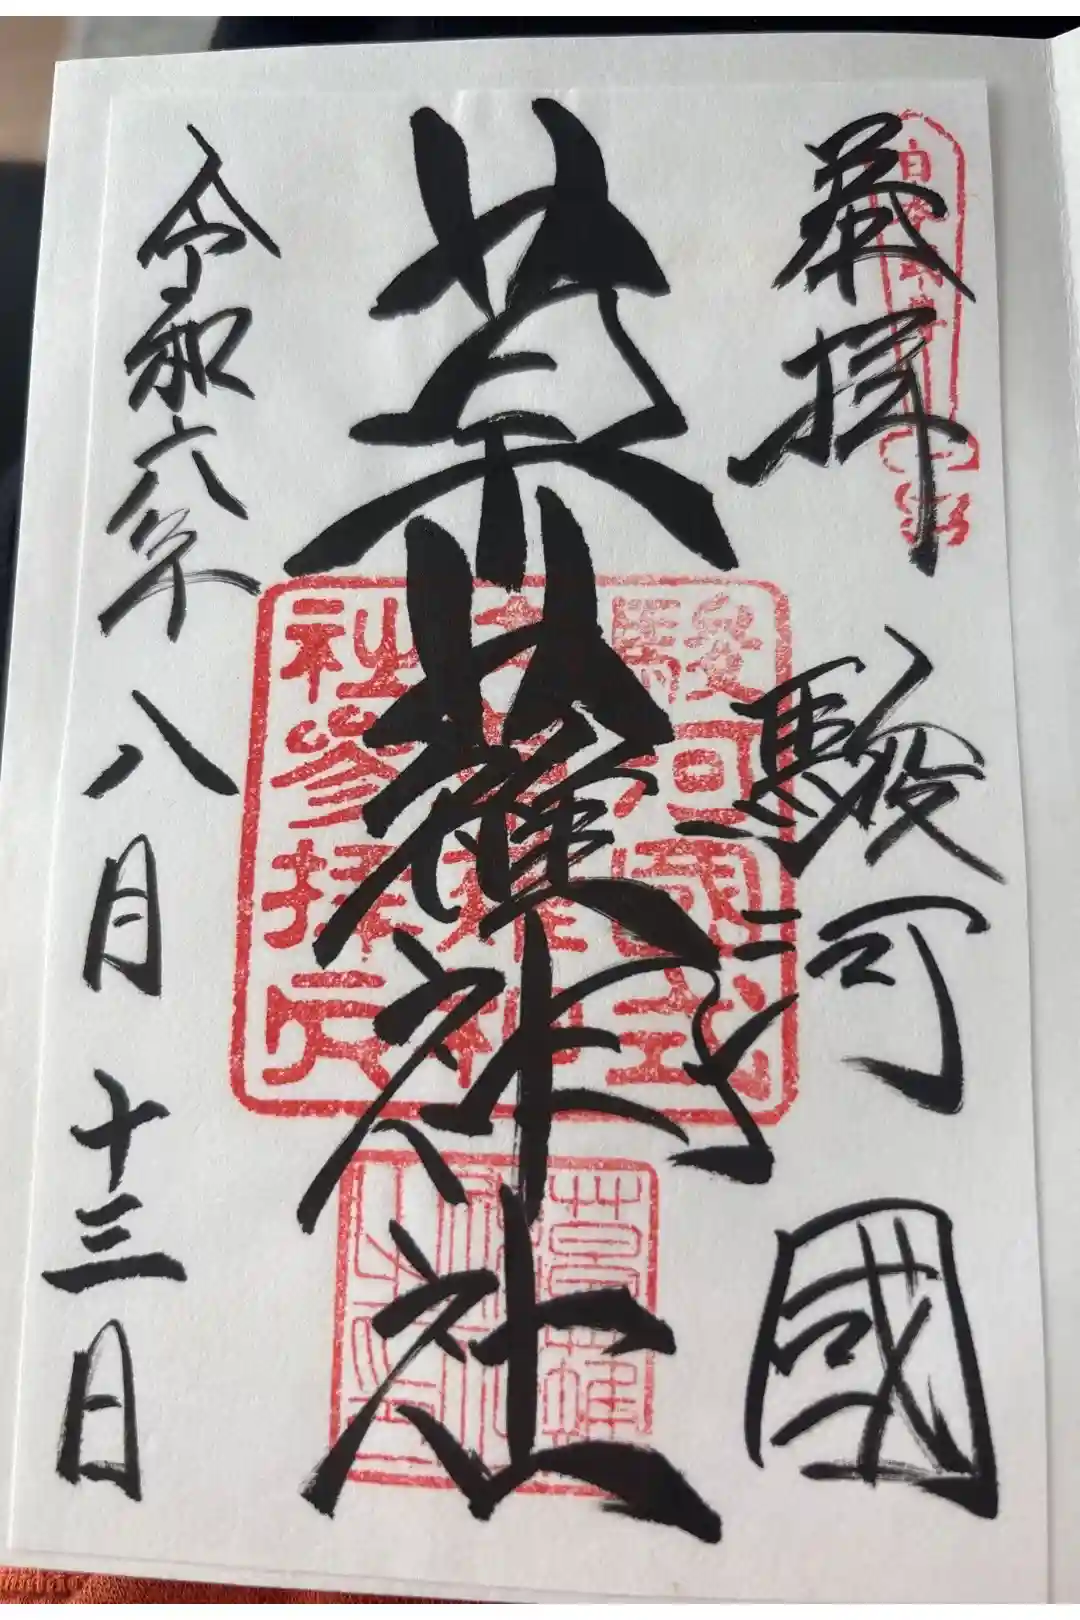 奉拝 駿河國
草薙神社
令和六年八月十三日
駿河國式
内草薙神
社參拝
草薙